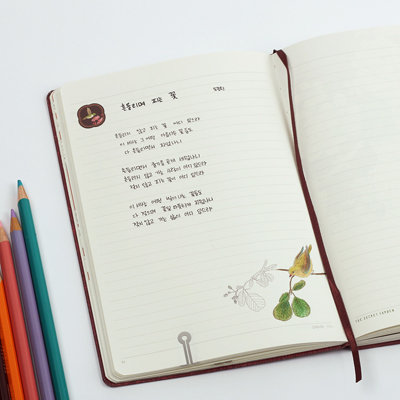 흔들리며 피는 꽃
도종환
흔들리지 않고 피는 꽃이 어디 있으랴
이 세상 그 어떤 아름다운 꽃들도
다 흔들리면서 피었나니
흔들리면서 줄기를 곧게 세웠나니
흔들리지 않고 가는 사랑이 어디 있으랴
젖지 않고 피는 꽃이 어디 있으랴
이 세상 어떤 빛나는 꽃들도
다 젖으며 꽃잎 따뜻하게 피웠나니
젖지 않고 가는 삶이 어디 있으랴
THE SECRET GARDEN